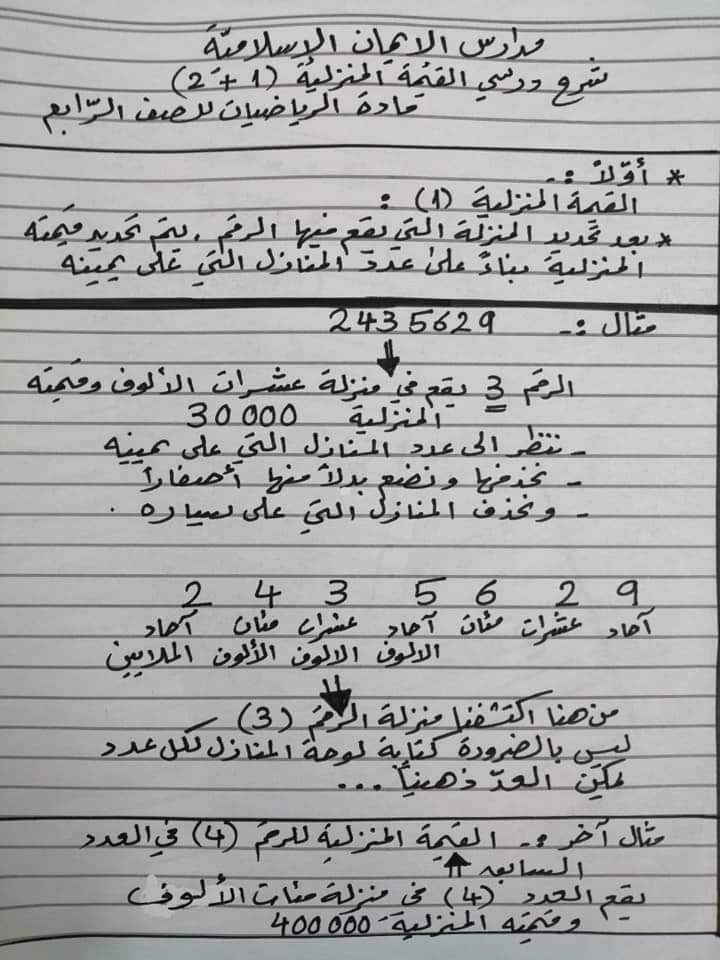 مدارس الايمان الإسلاميّة
شرح درسي القيمة المنزلية (1 + 2)
مادة الرياضيات للصف الرّابع
* أوّلاً :-
القيمة المنزلية (1) :
* بعد تحديد المنزلة التي يقع فيها الرقم ، يتم تحديد قيمته
المنزلية بناءً على عدد المنازل التي على يمينه
مثال :- 2435629
الرقم 3 يقع في منزلة عشرات الألوف وقيمته
المنزلية 30000
- ننظر الى عدد المنازل التي على يمينه
- نحذفها ونضع بدلاً منها أصفاراً
- ونحذف المنازل التي على يساره .
2 4 3 5 6 2 9
آحاد عشرات مئات آحاد عشرات مئات آحاد
الالوف الالوف الألوف الملايين
من هنا اكتشفنا منزلة الرقم (3)
ليس بالضرورة كتابة لوحة المنازل لكل عدد
يمكن العدّ ذهنياً ...
مثال آخر :- القيمة المنزلية للرقم (4) في العدد
السابق
يقع العدد (4) في منزلة مئات الألوف
وقيمته المنزلية 400000